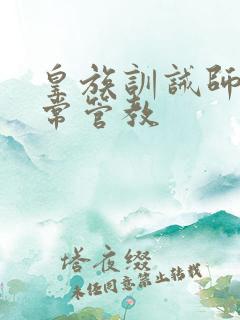 皇族訓誡師
常管教
塔夜缀
未经同意禁止转载